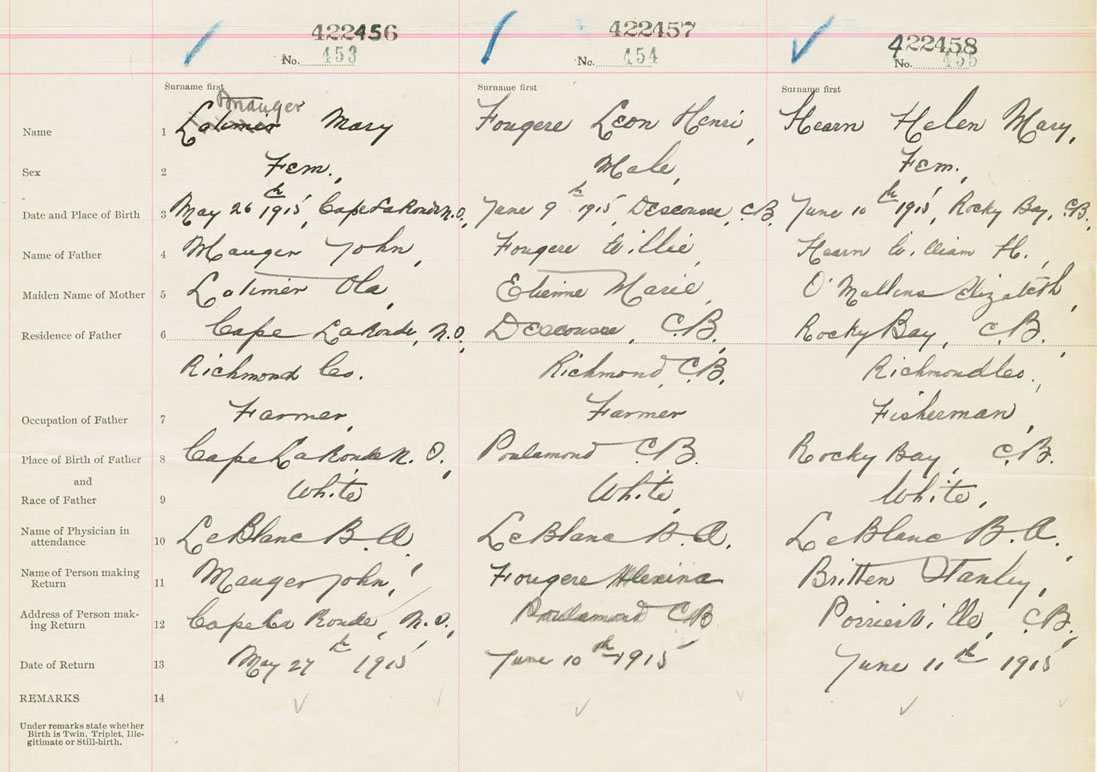 422456 422457 422458
No. 453 No. 454 No. 455
Surname first Surname first Surname first
Mauger
Name 1 Latimer Mary Fougere Leon Henri, Hearn Helen Mary,
Sex 2 Fem., Male, Fem.,
Date and Place of Birth 3 May 26th 1915, Cape LaRonde N.O., June 9th 1915, Descousse, C.B. June 10th 1915, Rocky Bay, C.B.
Name of Father 4 Mauger John, Fougere Willie, Hearn William H.,
Maiden Name of Mother 5 Latimer Ola, Etienne Marie, O'Mullins Elizabeth,
Residence of Father 6 Cape LaRonde, N.O., Descousse, C.B., Rocky Bay, C.B.,
Richmond Co. Richmond, C.B., Richmond Co.,
Occupation of Father 7 Farmer, Farmer Fisherman,
Place of Birth of Father 8 Cape LaRonde N.O., Poulamond C.B. Rocky Bay, C.B.
and
Race of Father 9 White White, White,
Name of Physician in
attendance 10 LeBlanc B.A., LeBlanc B.A. LeBlanc B.A.,
Name of Person making
Return 11 Mauger John, Fougere Alexina Britten Stanley,
Address of Person mak-
ing Return 12 Cape La Ronde, N.O., Poulamond C.B. Poirierville, C.B.,
Date of Return 13 May 27th 1915 June 10th 1915 June 11th 1915
REMARKS 14
Under remarks state whether
Birth is Twin, Triplet, Ille-
gitimate or Still-birth.